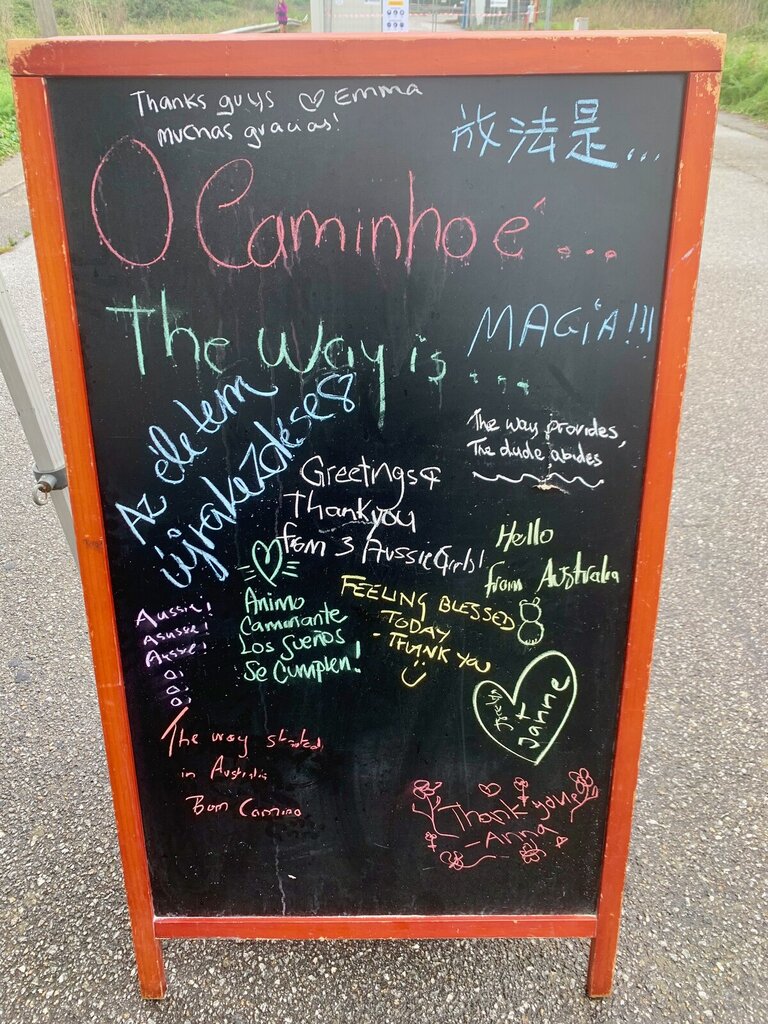 Thanks guys ♡ Emma
muchas gracias!
放法是...
O Caminho é...
The way is....
MAGiA!!!
Az életem
újrakezdése
The way provides,
The dude abides
Greetings &
Thankyou
from 3 Aussie Girls!
Hello
from Australia
Aussie!
Asussie!
Aussie!
Oi
Oi
Oi
Animo
Caminante
Los Sueños
Se Cumplen!
FEELING BLESSED
TODAY
- THANK YOU
+ Janne
The way started
in Australia
Bom Camino
Thank you
- Anna